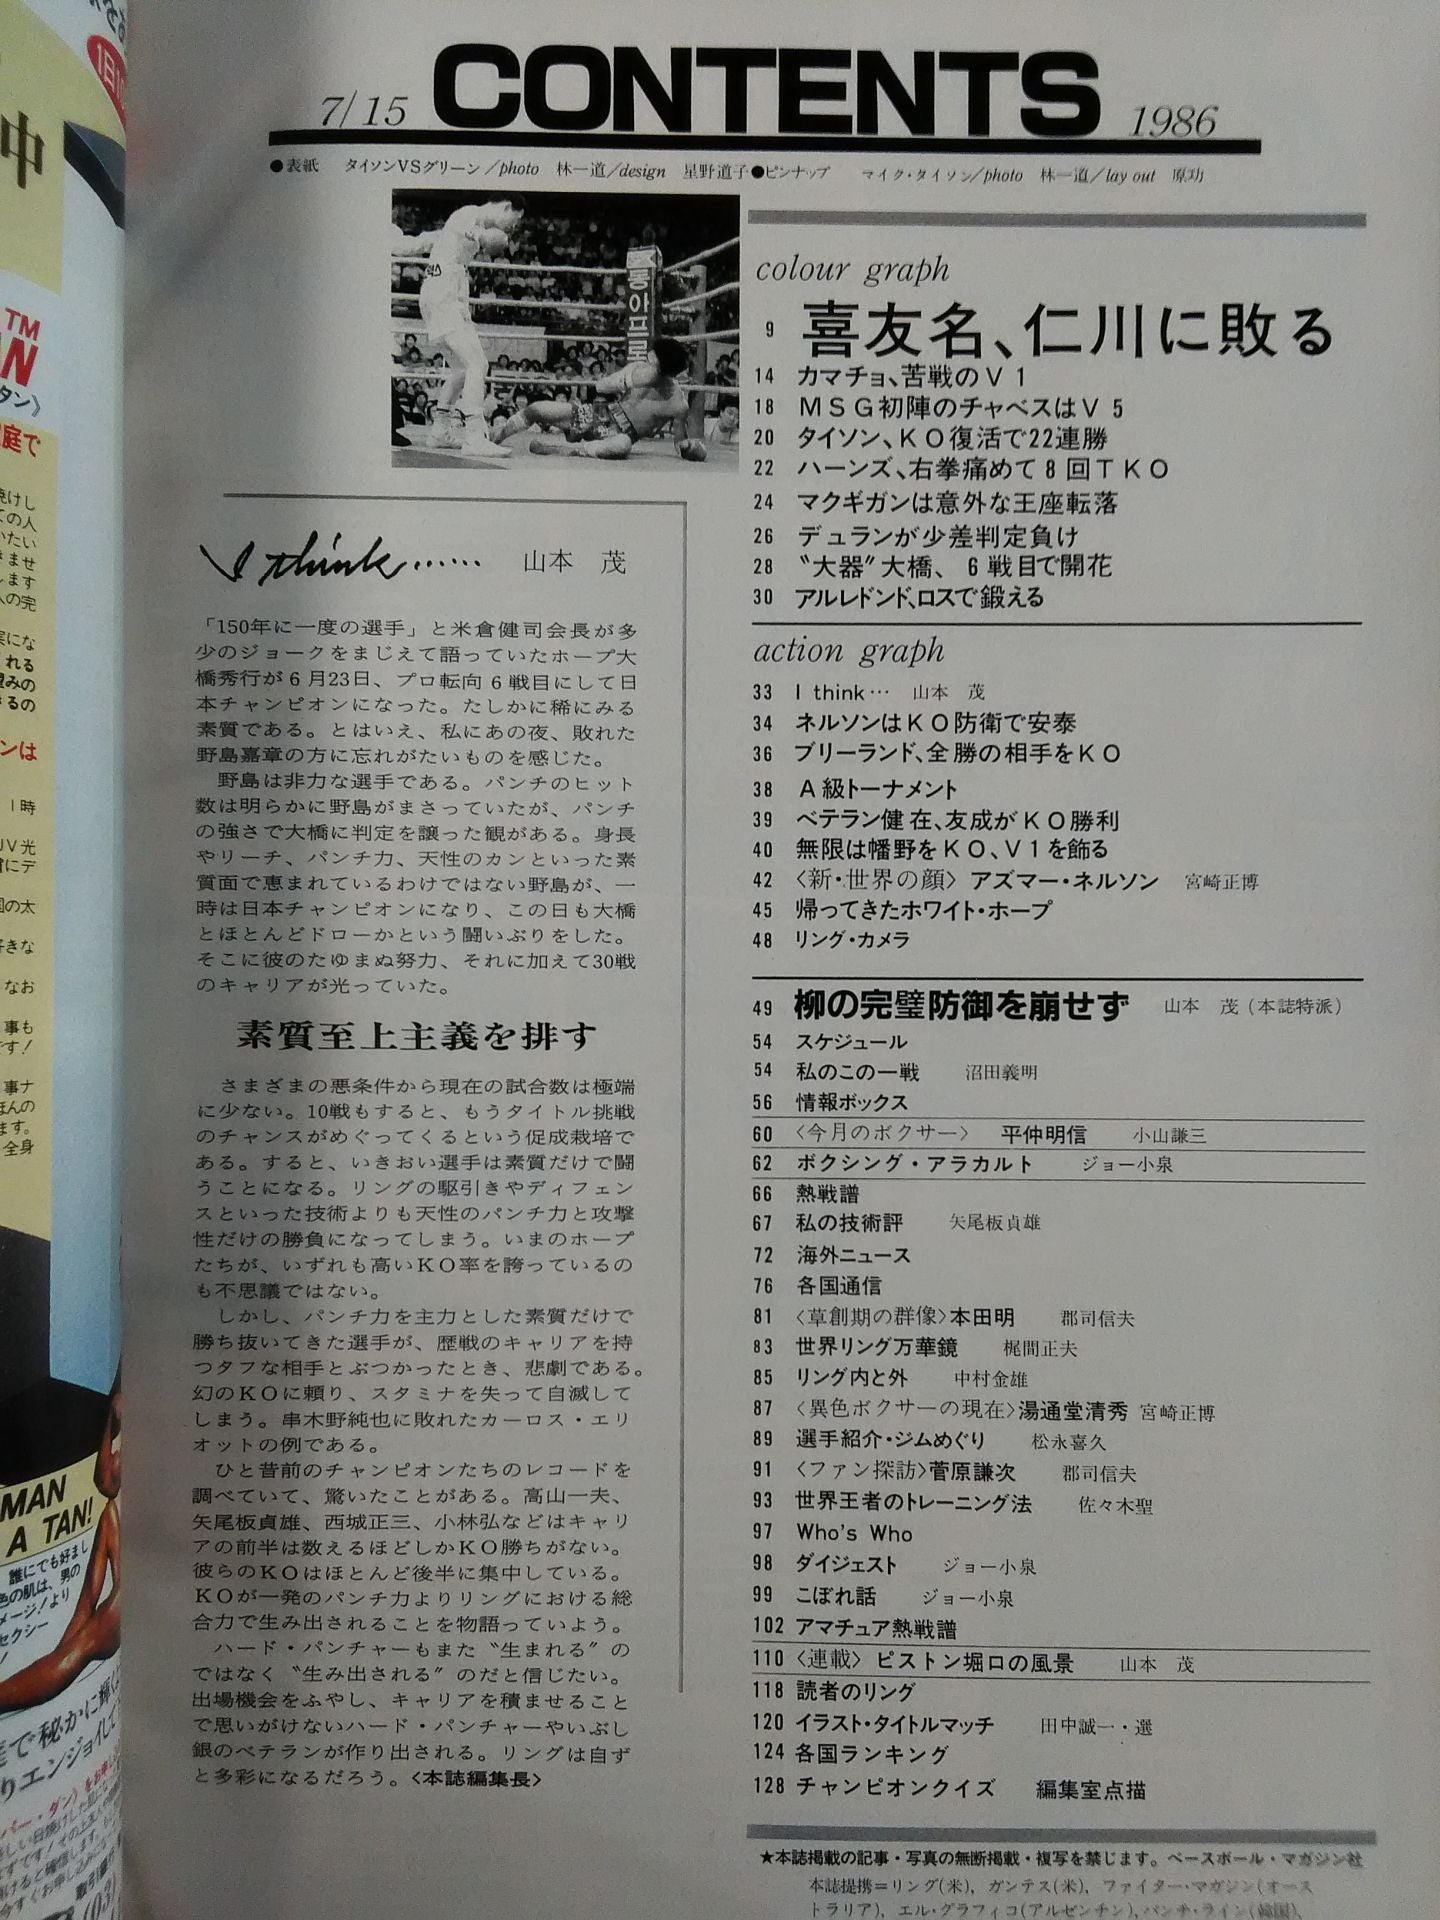 CONTENTS
7/15
1986
●表紙 タイソンVSグリーン/photo 林一道/design 星野道子●ピンナップ マイク・タイソン/photo 林一道/lay out 原功
동아프로
colour graph
9 喜友名、仁川に敗る
14 カマチョ、苦戦のV1
18 MSG初陣のチャベスはV5
20 タイソン、KO復活で22連勝
22 ハーンズ、右拳痛めて8回TKO
24 マクギガンは意外な王座転落
26 デュランが少差判定負け
28 〝大器〟大橋、6戦目で開花
30 アルレドンド、ロスで鍛える
action graph
33 I think… 山本 茂
34 ネルソンはKO防衛で安泰
36 ブリーランド、全勝の相手をKO
38 A級トーナメント
39 ベテラン健在、友成がKO勝利
40 無限は幡野をKO、V1を飾る
42 〈新・世界の顔〉 アズマー・ネルソン 宮崎正博
45 帰ってきたホワイト・ホープ
48 リング・カメラ
49 柳の完璧防御を崩せず 山本 茂(本誌特派)
54 スケジュール
54 私のこの一戦 沼田義明
56 情報ボックス
60 〈今月のボクサー〉 平仲明信 小山謙三
62 ボクシング・アラカルト ジョー小泉
66 熱戦譜
67 私の技術評 矢尾板貞雄
72 海外ニュース
76 各国通信
81 〈草創期の群像〉本田明 郡司信夫
83 世界リング万華鏡 梶間正夫
85 リング内と外 中村金雄
87 〈異色ボクサーの現在〉湯通堂清秀 宮崎正博
89 選手紹介・ジムめぐり 松永喜久
91 〈ファン探訪〉菅原謙次 郡司信夫
93 世界王者のトレーニング法 佐々木聖
97 Who's Who
98 ダイジェスト ジョー小泉
99 こぼれ話 ジョー小泉
102 アマチュア熱戦譜
110 〈連載〉 ピストン堀口の風景 山本 茂
118 読者のリング
120 イラスト・タイトルマッチ 田中誠一・選
124 各国ランキング
128 チャンピオンクイズ 編集室点描
★本誌掲載の記事・写真の無断掲載・複写を禁じます。ベースボール・マガジン社
本誌提携=リング(米)、ガンテス(米)、ファイター・マガジン(オース
トラリア)、エル・グラフィコ(アルゼンチン)、パンチ・ライン(韓国)、
I think…… 山本 茂
「150年に一度の選手」と米倉健司会長が多
少のジョークをまじえて語っていたホープ大
橋秀行が6月23日、プロ転向6戦目にして日
本チャンピオンになった。たしかに稀にみる
素質である。とはいえ、私にあの夜、敗れた
野島嘉章の方に忘れがたいものを感じた。
野島は非力な選手である。パンチのヒット
数は明らかに野島がまさっていたが、パンチ
の強さで大橋に判定を譲った観がある。身長
やリーチ、パンチ力、天性のカンといった素
質面で恵まれているわけではない野島が、一
時は日本チャンピオンになり、この日も大橋
とほとんどドローかという闘いぶりをした。
そこに彼のたゆまぬ努力、それに加えて30戦
のキャリアが光っていた。
素質至上主義を排す
さまざまの悪条件から現在の試合数は極端
に少ない。10戦もすると、もうタイトル挑戦
のチャンスがめぐってくるという促成栽培で
ある。すると、いきおい選手は素質だけで闘
うことになる。リングの駆引きやディフェン
スといった技術よりも天性のパンチ力と攻撃
性だけの勝負になってしまう。いまのホープ
たちが、いずれも高いKO率を誇っているの
も不思議ではない。
しかし、パンチ力を主力とした素質だけで
勝ち抜いてきた選手が、歴戦のキャリアを持
つタフな相手とぶつかったとき、悲劇である。
幻のKOに頼り、スタミナを失って自滅して
しまう。串木野純也に敗れたカーロス・エリ
オットの例である。
ひと昔前のチャンピオンたちのレコードを
調べていて、驚いたことがある。高山一夫、
矢尾板貞雄、西城正三、小林弘などはキャリ
アの前半は数えるほどしかKO勝ちがない。
彼らのKOはほとんど後半に集中している。
KOが一発のパンチ力よりリングにおける総
合力で生み出されることを物語っていよう。
ハード・パンチャーもまた〝生まれる〟の
ではなく〝生み出される〟のだと信じたい。
出場機会をふやし、キャリアを積ませること
で思いがけないハード・パンチャーやいぶし
銀のベテランが作り出される。リングは自ず
と多彩になるだろう。〈本誌編集長〉
中
TM
MAN
A TAN!
誰にでも好まし